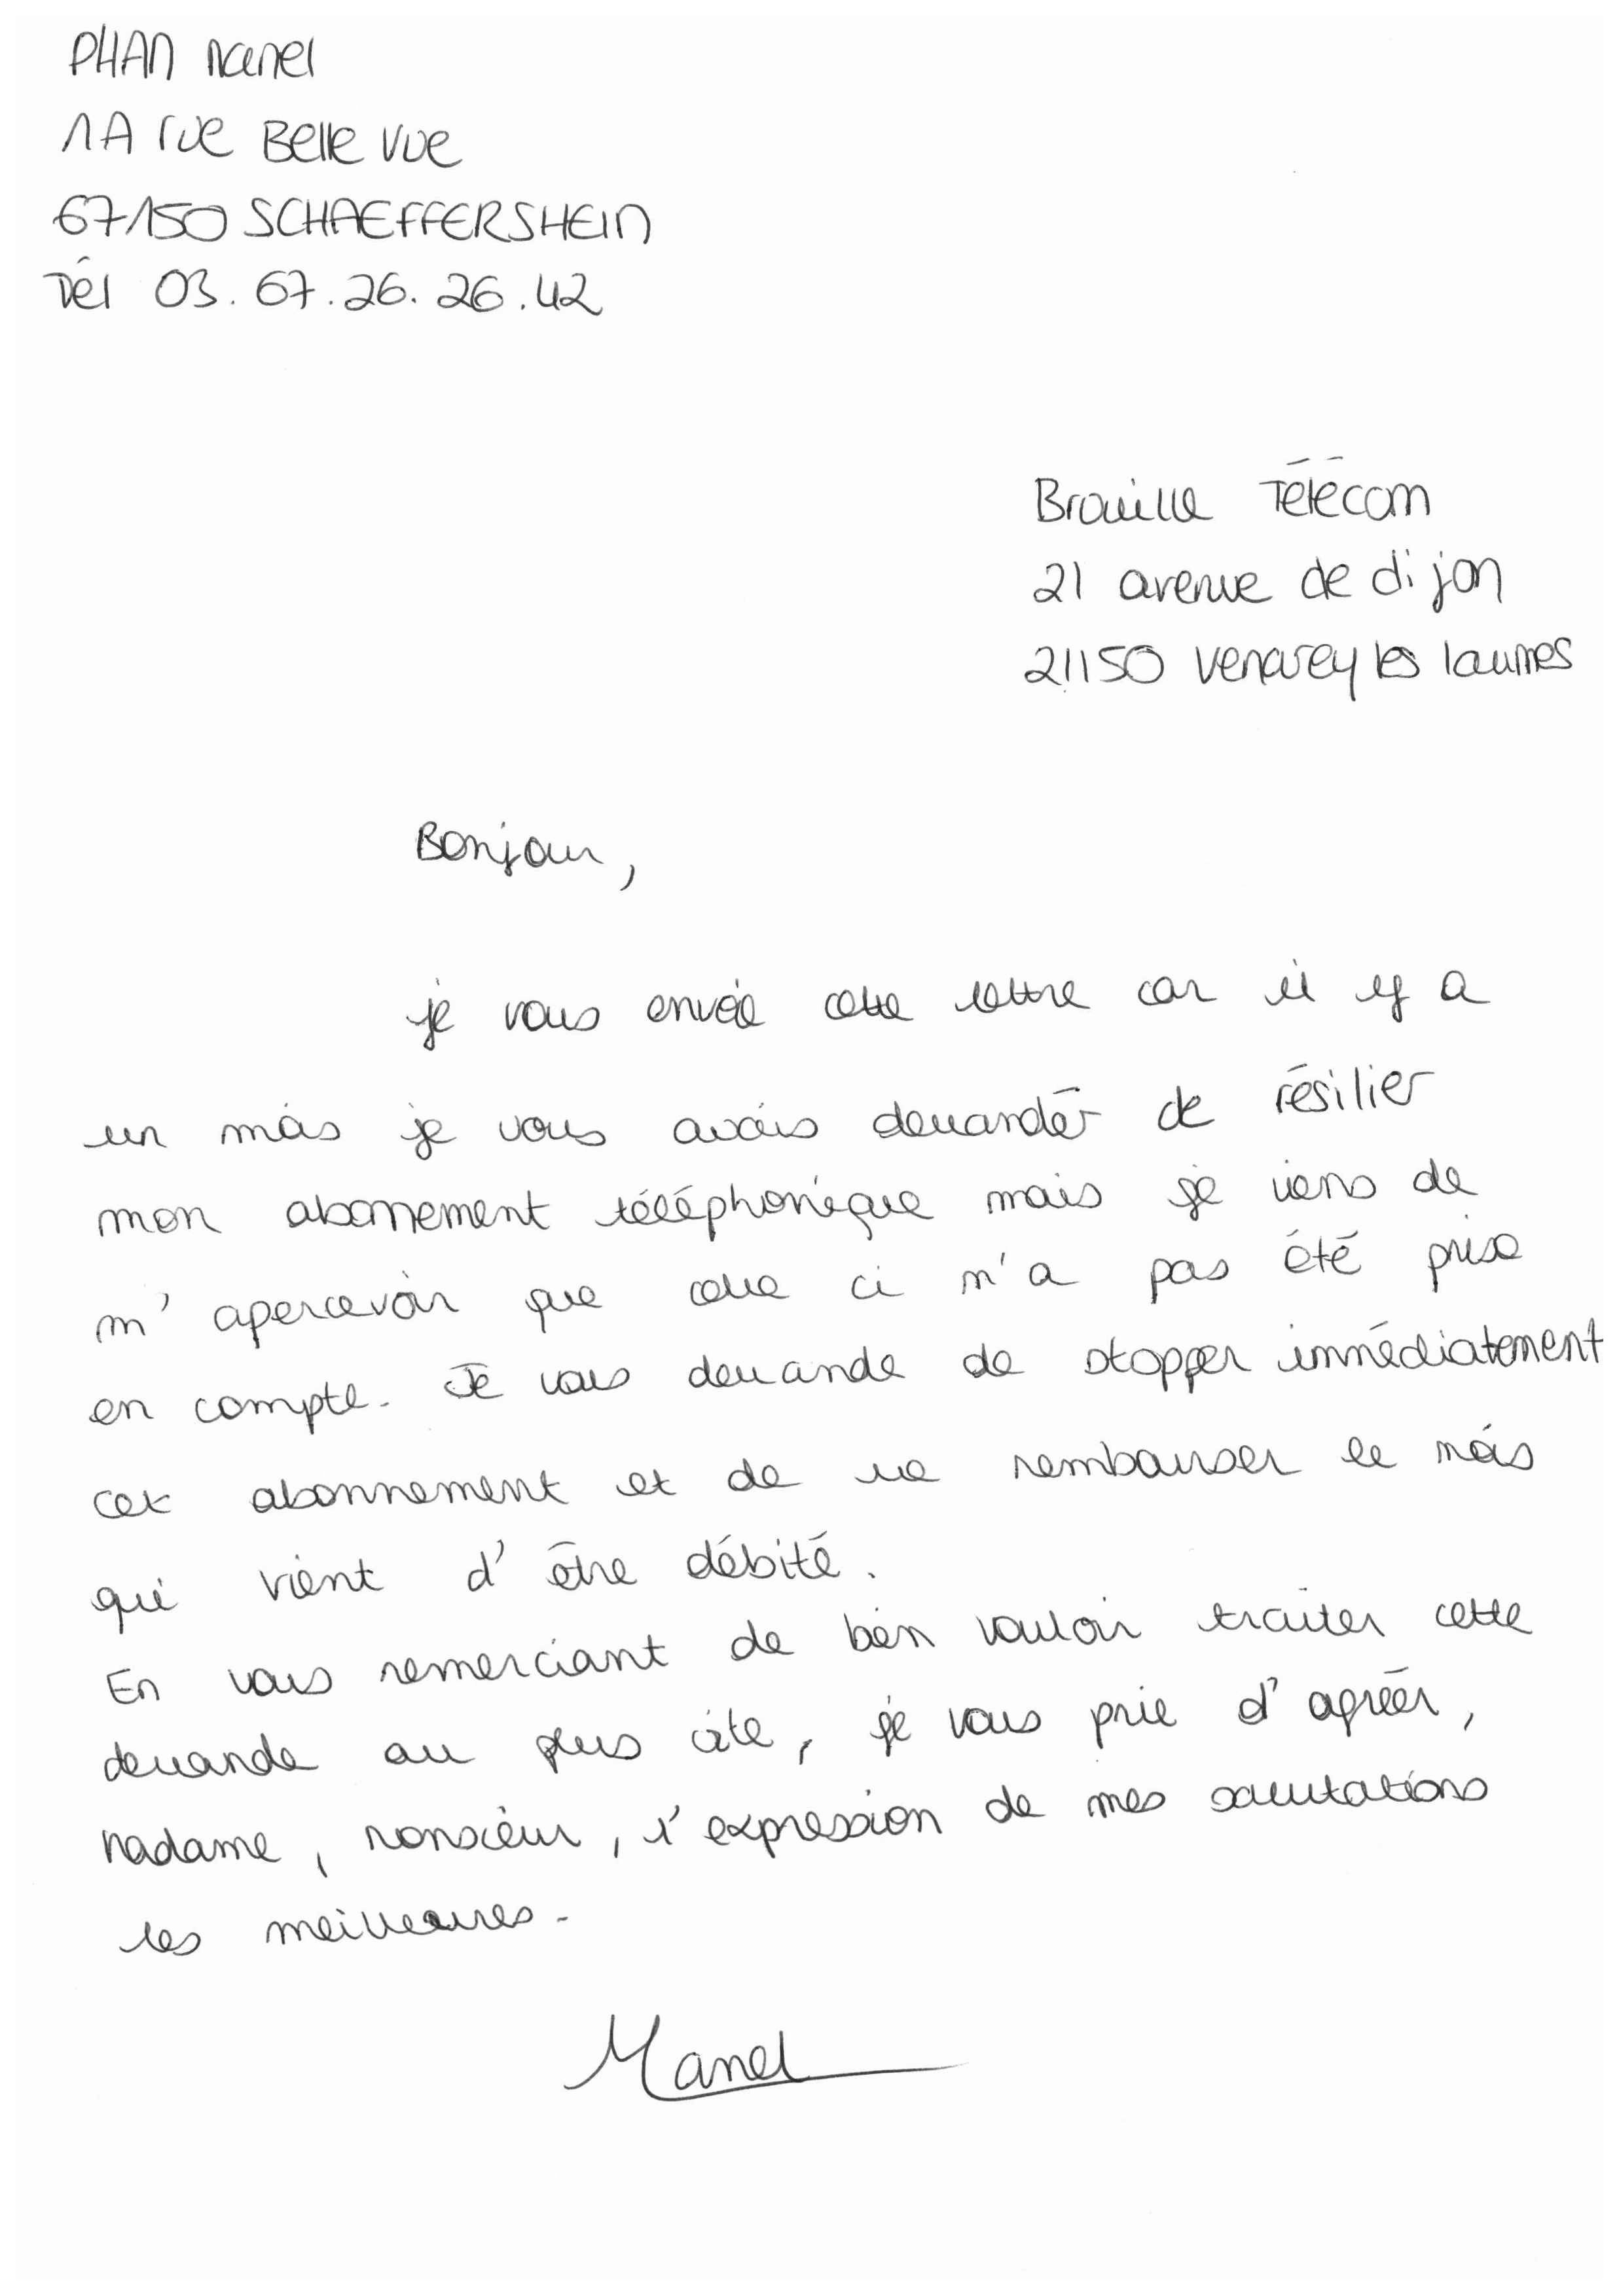 PHAN Manel
1A rue Belle Vue
67150 SCHAEFFERSHEIN
Tél 03.67.26.26.42
Brouille Télécom
21 avenue de dijon
21150 Venarey les laumes
Bonjour,
je vous envoie cette lettre car il y a
un mois je vous avais demandér de résilier
mon abonnement téléphonique mais je viens de
m'apercevoir que celle ci n'a pas été prise
en compte. Je vous demande de stopper immédiatement
cet abonnement et de me rembourser le mois
qui vient d'être débité.
En vous remerciant de bien vouloir traiter cette
demande au plus vite, je vous prie d'agréer,
Madame, Monsieur, l'expression de mes salutations
les meilleures.
Manel